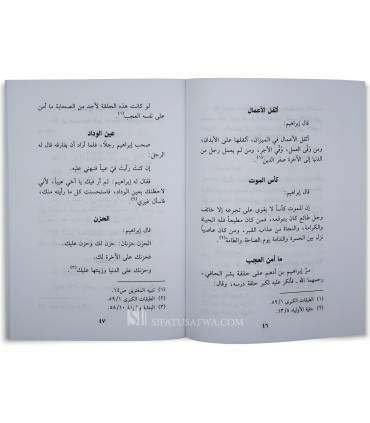 أثقل الأعمال
قال إبراهيم:
أثقل الأعمال في الميزان، أثقلها على الأبدان،
ومن وفَّى العمل، وُفِّي الأجر، ومن لم يعمل رحل من
الدنيا إلى الآخرة صفر اليدين(١).
كأس الموت
قال إبراهيم:
إن للموت كأساً لا يقوى على تجرعه إلا خائف
وجل طائع كان يتوقعه، فمن كان مطيعاً فله الحياة
والكرامة، والنجاة من عذاب القبر، ومن كان عاصياً
نزل بين الحسرة والندامة يوم الصاخة والطامة(٢).
ما أمن العجب
مرَّ إبراهيم بن أدهم على حلقة بشر الحافي،
رحمهما الله ـ فأنكر عليه لكبر حلقة درسه، وقال:
(١) الطبقات الكبرى ٥٩/١.
(٢) حلية الأولياء ١٣/٨.
٤٦
لو كانت هذه الحلقة لأحد من الصحابة ما أمن
على نفسه العجب(١).
عين الوداد
صحب إبراهيم رجلاً، فلما أراد أن يفارقه قال له
الرجل:
إن كنت رأيت فيَّ عيباً فنبهني عليه.
فقال له إبراهيم: لم أر فيك يا أخي عيباً، لأني
لاحظتك بعين الوداد، فاستحسنت كل ما رأيته منك،
فاسأل غيري(٢).
الحزن
قال إبراهيم:
الحزن حزنان: حزن لك وحزن عليك.
فحزنك على الآخرة لك.
وحزنك على الدنيا وزينتها عليك(٣).
(١) تنبيه المغترين ص٦٤.
(٢) الطبقات الكبرى ٥٩/١.
(٣) البداية والنهاية ١٥٨/١٠.
٤٧
SIFATUSAFWA.COM